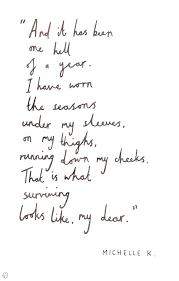 "And it has been
one hell
of a year.
I have worn
the seasons
under my sleeves,
on my thighs,
running down my cheeks.
That is what
surviving
looks like, my dear."
MICHELLE K.
©